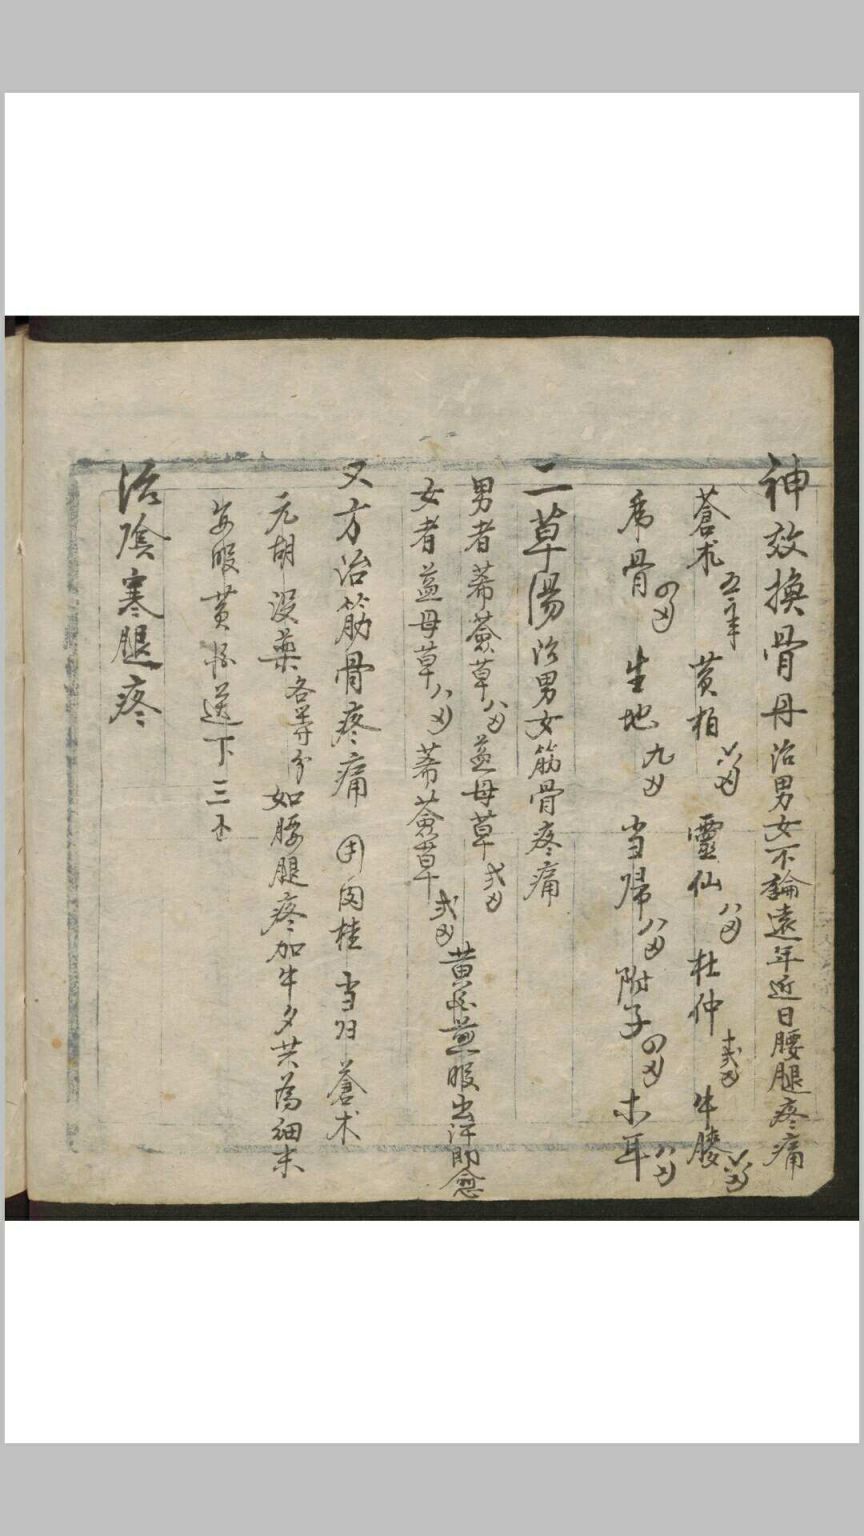 神效換骨丹治男女不論遠年近日腰腿疼痛
蒼术 黃柏 靈仙 八 杜仲 牛膝
虎骨 四 生地 九 当歸 八 附子 四 木耳 八
二草湯治男女筋骨疼痛
男者莃薟草八 益母草弍
女者益母草八 莃薟草弍 黃酒煎服出汗即愈
又方治筋骨疼痛 用肉桂 当归 蒼术
元胡 沒藥各等分如腰腿疼加牛夕共為細末
每服 黃酒送下三
治陰寒腿疼